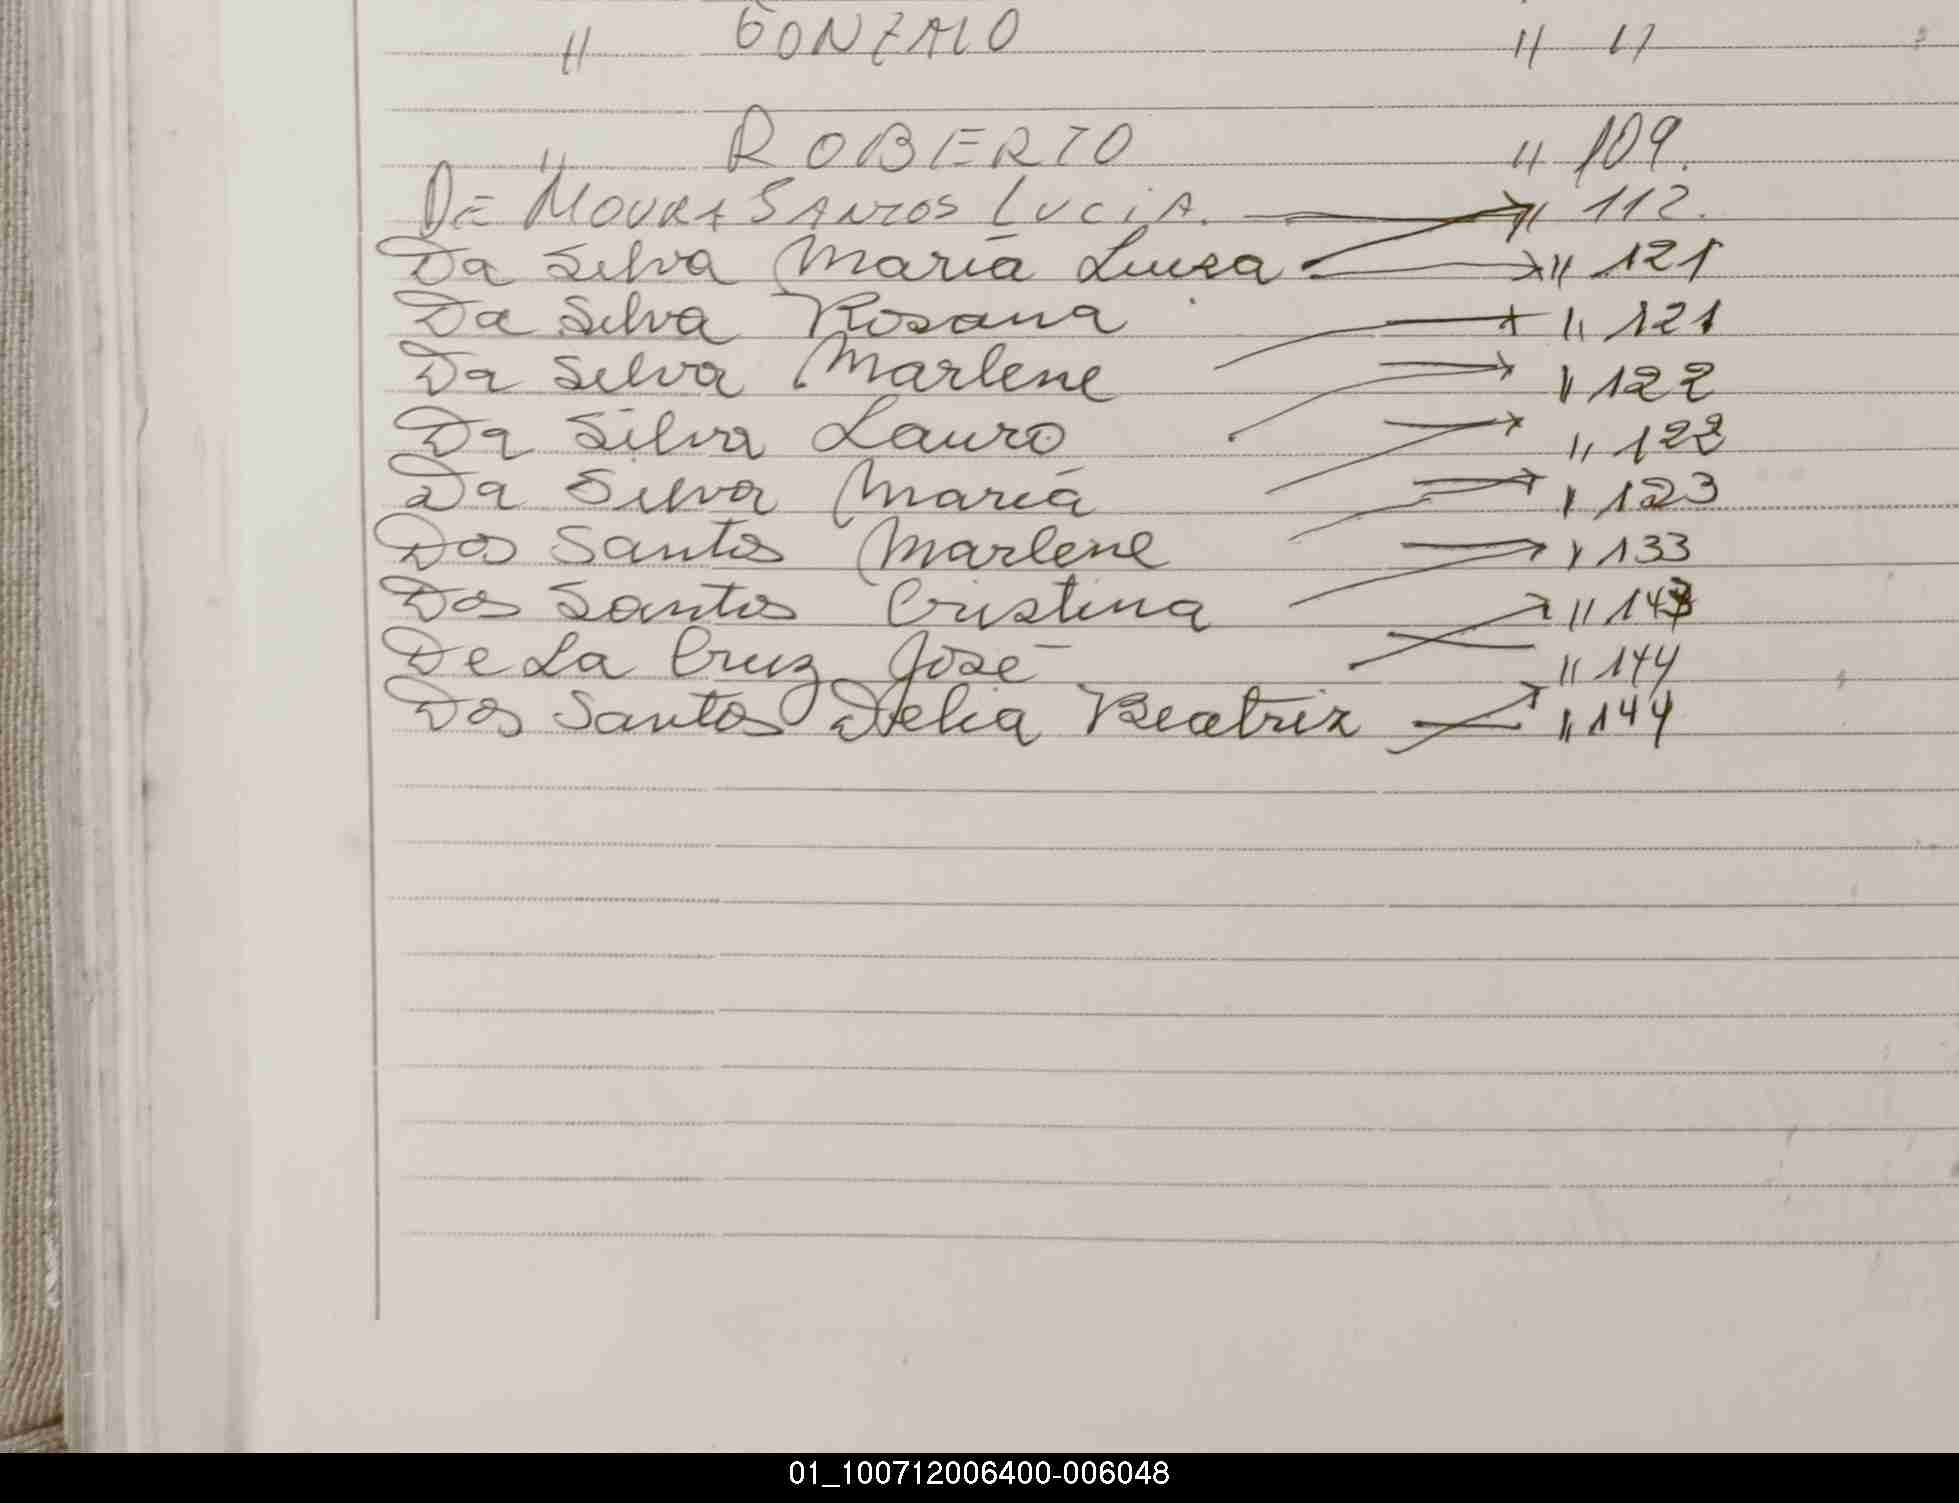 " GONZALO " "
" ROBERTO " 109.
DE MOURA SANTOS LUCIA. " 112.
Da Silva María Luisa " 121
Da Silva Rosana " 121
Da Silva Marlene " 122
Da Silva Lauro " 122
Da Silva María " 123
Dos Santos Marlene " 133
Dos Santos Cristina " 143
De La Cruz José " 144
Dos Santos Delia Beatriz " 144
01_100712006400-006048